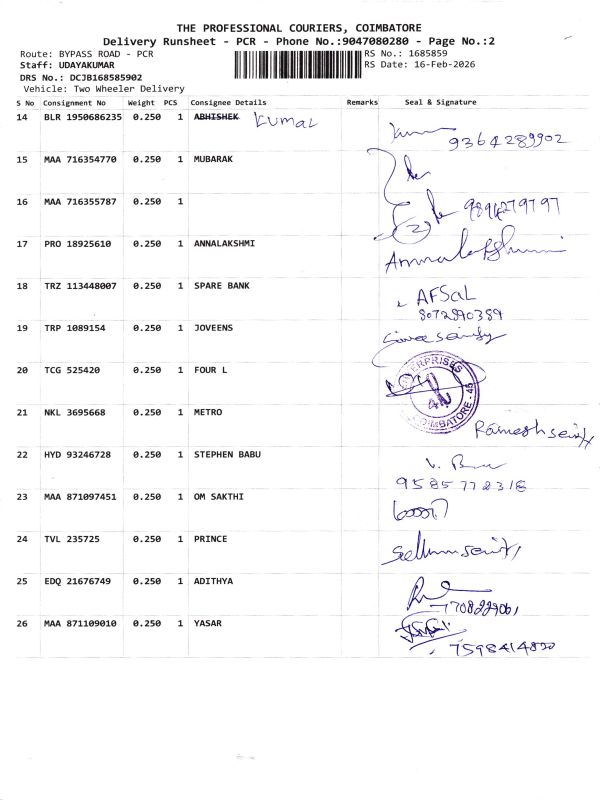 THE PROFESSIONAL COURIERS, COIMBATORE
Delivery Runsheet - PCR - Phone No.:9047080280 - Page No.:2
Route: BYPASS ROAD - PCR
RS No.: 1685859
Staff: UDAYAKUMAR
RS Date: 16-Feb-2026
DRS No.: DCJB168585902
Vehicle: Two Wheeler Delivery
S No Consignment No Weight PCS Consignee Details Remarks Seal & Signature
14 BLR 1950686235 0.250 1 ABHISHEK KUMAR
9364289902
15 MAA 716354770 0.250 1 MUBARAK
16 MAA 716355787 0.250 1
17 PRO 18925610 0.250 1 ANNALAKSHMI
Annalakshmi
18 TRZ 113448007 0.250 1 SPARE BANK AFSAL
8072890389
19 TRP 1089154 0.250 1 JOVEENS
20 TCG 525420 0.250 1 FOUR L
ENTERPRISES
COIMBATORE - 45
21 NKL 3695668 0.250 1 METRO
Ramesh
22 HYD 93246728 0.250 1 STEPHEN BABU
9585778318
23 MAA 871097451 0.250 1 OM SAKTHI
24 TVL 235725 0.250 1 PRINCE
25 EDQ 21676749 0.250 1 ADITHYA
26 MAA 871109010 0.250 1 YASAR
7598414820